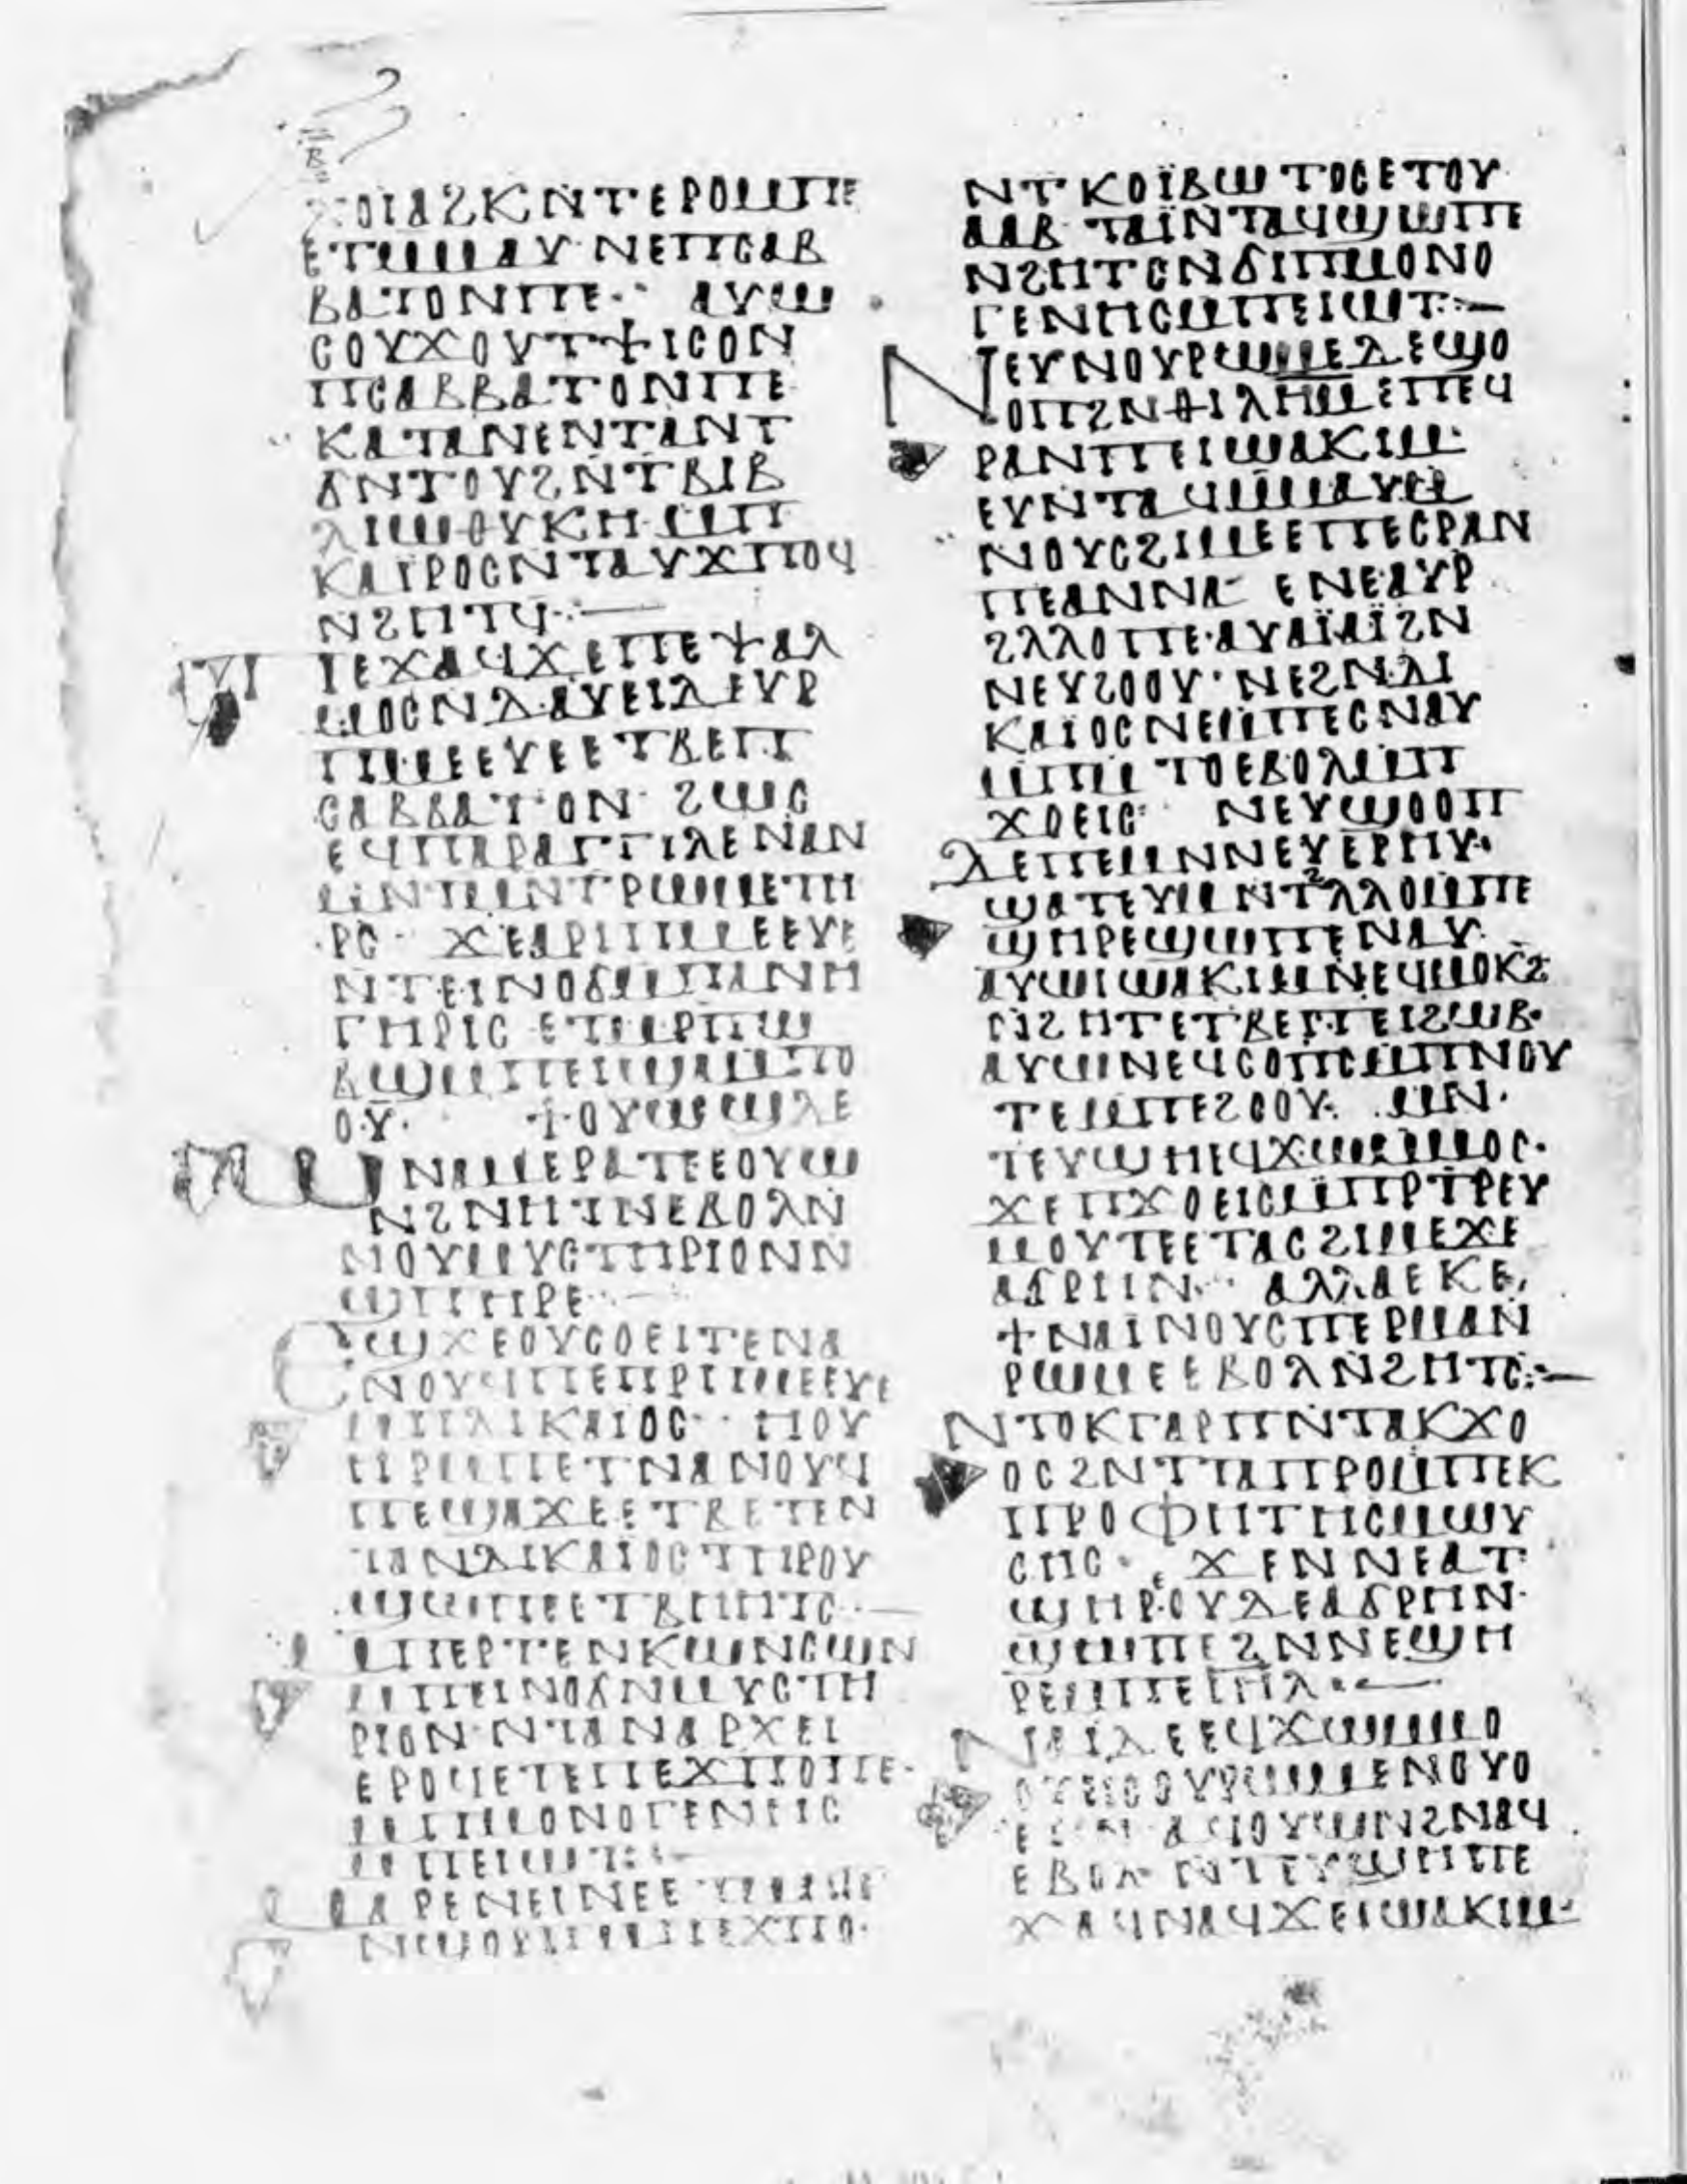 ⲘⲞⲒⲀϨⲔⲚⲦⲈⲢⲞⲘⲠⲈ
ⲈⲦⲘⲘⲀⲨ· ⲚⲈⲠⲤⲀⲂ
ⲂⲀⲦⲞⲚⲠⲈ·· ⲀⲨⲰ
ⲤⲞⲨϪⲞⲨⲦϮⲒⲤⲞⲚ
ⲠⲤⲀⲂⲂⲀⲦⲞⲚⲠⲈ·
ⲔⲀⲦⲀⲚⲈⲚⲦⲀⲚⲦ
ϬⲚⲦⲞⲨϨⲚⲦⲂⲒⲂ
ⲖⲒⲰⲐⲨⲔⲎ·ⲘⲠ
ⲔⲀⲒⲢⲞⲤⲚⲦⲀⲨϪⲠⲞϤ
ⲚϨⲎⲦϤ·:—
ⲠⲈϪⲀϤϪⲈⲠⲈⲮⲀⲖ
ⲘⲞⲤⲚⲆ·ⲀⲨⲈⲒⲆⲈⲨⲢ
ⲠⲘⲈⲈⲨⲈⲈⲦⲂⲈⲠ
ⲤⲀⲂⲂⲀⲦⲞⲚ· ϨⲰⲤ
ⲈϤⲠⲀⲢⲀⲄⲄⲒⲖⲈⲚⲀⲚ
ⲘⲚⲦⲘⲚⲦⲢⲰⲘⲈⲦⲎ
ⲢⲤ· ϪⲈⲀⲢⲒⲠⲘⲈⲈⲨⲈ
ⲚⲦⲈⲒⲚⲞϬⲘⲠⲀⲚⲎ
ⲄⲎⲢⲒⲤ·ⲈⲦⲘⲢⲠⲰ
ⲂϢⲘⲠⲈⲒϢⲀⲘⲠⲞ
ⲞⲨ· ϮⲞⲨⲰϢⲆⲈ
ⲚⲀⲘⲈⲢⲀⲦⲈⲈⲞⲨⲰ
ⲚϨⲚⲎⲦⲚⲈⲂⲞⲖⲚ
ⲚⲞⲨⲘⲨⲤⲦⲎⲢⲒⲞⲚⲚ
ϢⲠⲎⲢⲈ·:—
ⲈϢϪⲈⲞⲨⲤⲞⲈⲒⲦⲈⲚⲀ
ⲚⲞⲨϤⲠⲈⲠⲢⲠⲘⲈⲈⲨⲈ
ⲘⲠⲆⲒⲔⲀⲒⲞⲤ·· ⲠⲞⲨ
ⲎⲢⲘⲠⲈⲦⲚⲀⲚⲞⲨϤ
ⲠⲈϢⲀϪⲈⲈⲦⲂⲈⲦⲈⲚ
ⲦⲀⲚⲆⲒⲔⲀⲒⲞⲤⲦⲎⲢⲞⲨ
ϢⲰⲠⲈⲈⲦⲂⲎⲎⲦⲤ·:—
ⲘⲠⲈⲢⲦⲈⲚⲔⲰⲚⲤⲰⲚ
ⲘⲠⲈⲒⲚⲞϬⲚⲘⲨⲤⲦⲎ
ⲢⲒⲞⲚ·ⲚⲦⲀⲚⲀⲢⲬⲈⲒ
ⲈⲢⲞϤⲈⲦⲈⲠⲈϪⲠⲞⲠⲈ·
ⲘⲠⲘⲞⲚⲞⲄⲈⲚⲎⲤ
ⲘⲠⲈⲒⲰⲦ:·—
ⲘⲀⲢⲈⲚⲈⲒⲚⲈⲈ
ⲚϢⲞⲢⲠⲘⲠⲈϪⲠⲞ·
ⲚⲦⲔⲞⲒⲂⲰⲦⲞⲤⲈⲦⲞⲨ
ⲀⲀⲂ· ⲦⲀⲒⲚⲦⲀϤϢⲰⲠⲈ
ⲚϨⲎⲦⲤⲚϬⲒⲠⲘⲞⲚⲞ
ⲄⲈⲚⲎⲤⲘⲠⲈⲒⲰⲦ:·—
ⲚⲈⲨⲚⲞⲨⲢⲰⲘⲈⲆⲈϢⲞ
ⲞⲠϨⲚⲐⲒⲖⲎⲘⲈⲠⲈϤ
ⲢⲀⲚⲠⲈⲒⲰⲀⲔⲒⲘ·
ⲈⲨⲚⲦⲀϤⲘⲘⲀⲨⲘ
ⲚⲞⲨⲤϨⲒⲘⲈⲈⲠⲈⲤⲢⲀⲚ
ⲠⲈⲀⲚⲚⲀ· ⲈⲚⲈⲀⲨⲢ
ϨⲖⲖⲞⲠⲈ·ⲀⲨⲀⲒⲀⲒϨⲚ
ⲚⲈⲨϨⲞⲞⲨ· ⲚⲈϨⲚⲆⲒ
ⲔⲀⲒⲞⲤⲚⲈⲘⲠⲈⲤⲚⲀⲨ
ⲘⲠⲘⲦⲞⲈⲂⲞⲖⲘⲠ
ϪⲞⲈⲒⲤ· ⲚⲈⲨϢⲞⲞⲠ
ⲆⲈⲠⲈⲘⲚⲚⲈⲨⲈⲢⲎⲨ·
ϢⲀⲦⲈⲨⲘⲚⲦϨⲖⲖⲞⲘⲠⲈ
ϢⲎⲢⲈϢⲰⲠⲈⲚⲀⲨ·
ⲀⲨⲰⲒⲰⲀⲔⲒⲘⲚⲈϤⲘⲞⲔϨ
ⲚϨⲎⲦⲈⲦⲂⲈⲠⲈⲒϨⲰⲂ·
ⲀⲨⲰⲚⲈϤⲤⲞⲠⲤⲘⲠⲚⲞⲨ
ⲦⲈⲘⲠⲈϨⲞⲞⲨ· ⲘⲚ·
ⲦⲈⲨϢⲎⲈϤϪⲰⲘⲘⲞⲤ·
ϪⲈⲠϪⲞⲈⲒⲤⲘⲠⲢⲦⲢⲈⲨ
ⲘⲞⲨⲦⲈⲈⲦⲀⲤϨⲒⲘⲈϪⲈ
ⲀϬⲢⲎⲚ·· ⲀⲖⲖⲀⲈⲔⲈ
ϮⲚⲀⲒⲚⲞⲨⲤⲠⲈⲢⲘⲀⲚ
ⲢⲰⲘⲈⲈⲂⲞⲖⲚϨⲎⲦⲤ:·—
ⲚⲦⲞⲔⲄⲀⲢⲠⲚⲦⲀⲔϪⲞ
ⲞⲤϨⲚⲦⲦⲀⲠⲢⲞⲘⲠⲈⲔ
ⲠⲢⲞⲪⲎⲦⲎⲤⲘⲰⲨ
ⲤⲎⲤ· ϪⲈⲚⲚⲈⲀⲦ
ϢⲎⲢⲞⲨⲆⲈⲀϬⲢⲎⲚ·
ϢⲰⲠⲈϨⲚⲚⲈϢⲎ
ⲢⲈⲘⲠⲈⲒⲎⲖ·:—
ⲚⲀⲒⲆⲈⲈϤϪⲰⲘⲘⲞ
ⲞⲨⲈⲒⲤⲞⲨⲢⲰⲘⲈⲚⲞⲨⲞ
ⲈⲒⲚ ⲀϤⲞⲨⲰⲚϨⲚⲀϤ
ⲈⲂⲞⲖ·ⲚⲦⲈⲨϢⲎⲠⲈ
ϪⲀϤⲚⲀϤϪⲈⲒⲰⲀⲔⲒⲘ·